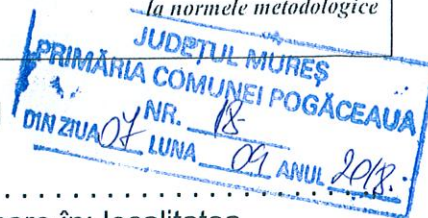 la normele metodologice
JUDEȚUL MUREȘ
PRIMĂRIA COMUNEI POGĂCEAUA
NR. 18
DIN ZIUA 07 LUNA 09 ANUL 2018.
. . . . . . . . . . . . . . . . . . . . . . .
în: localitatea